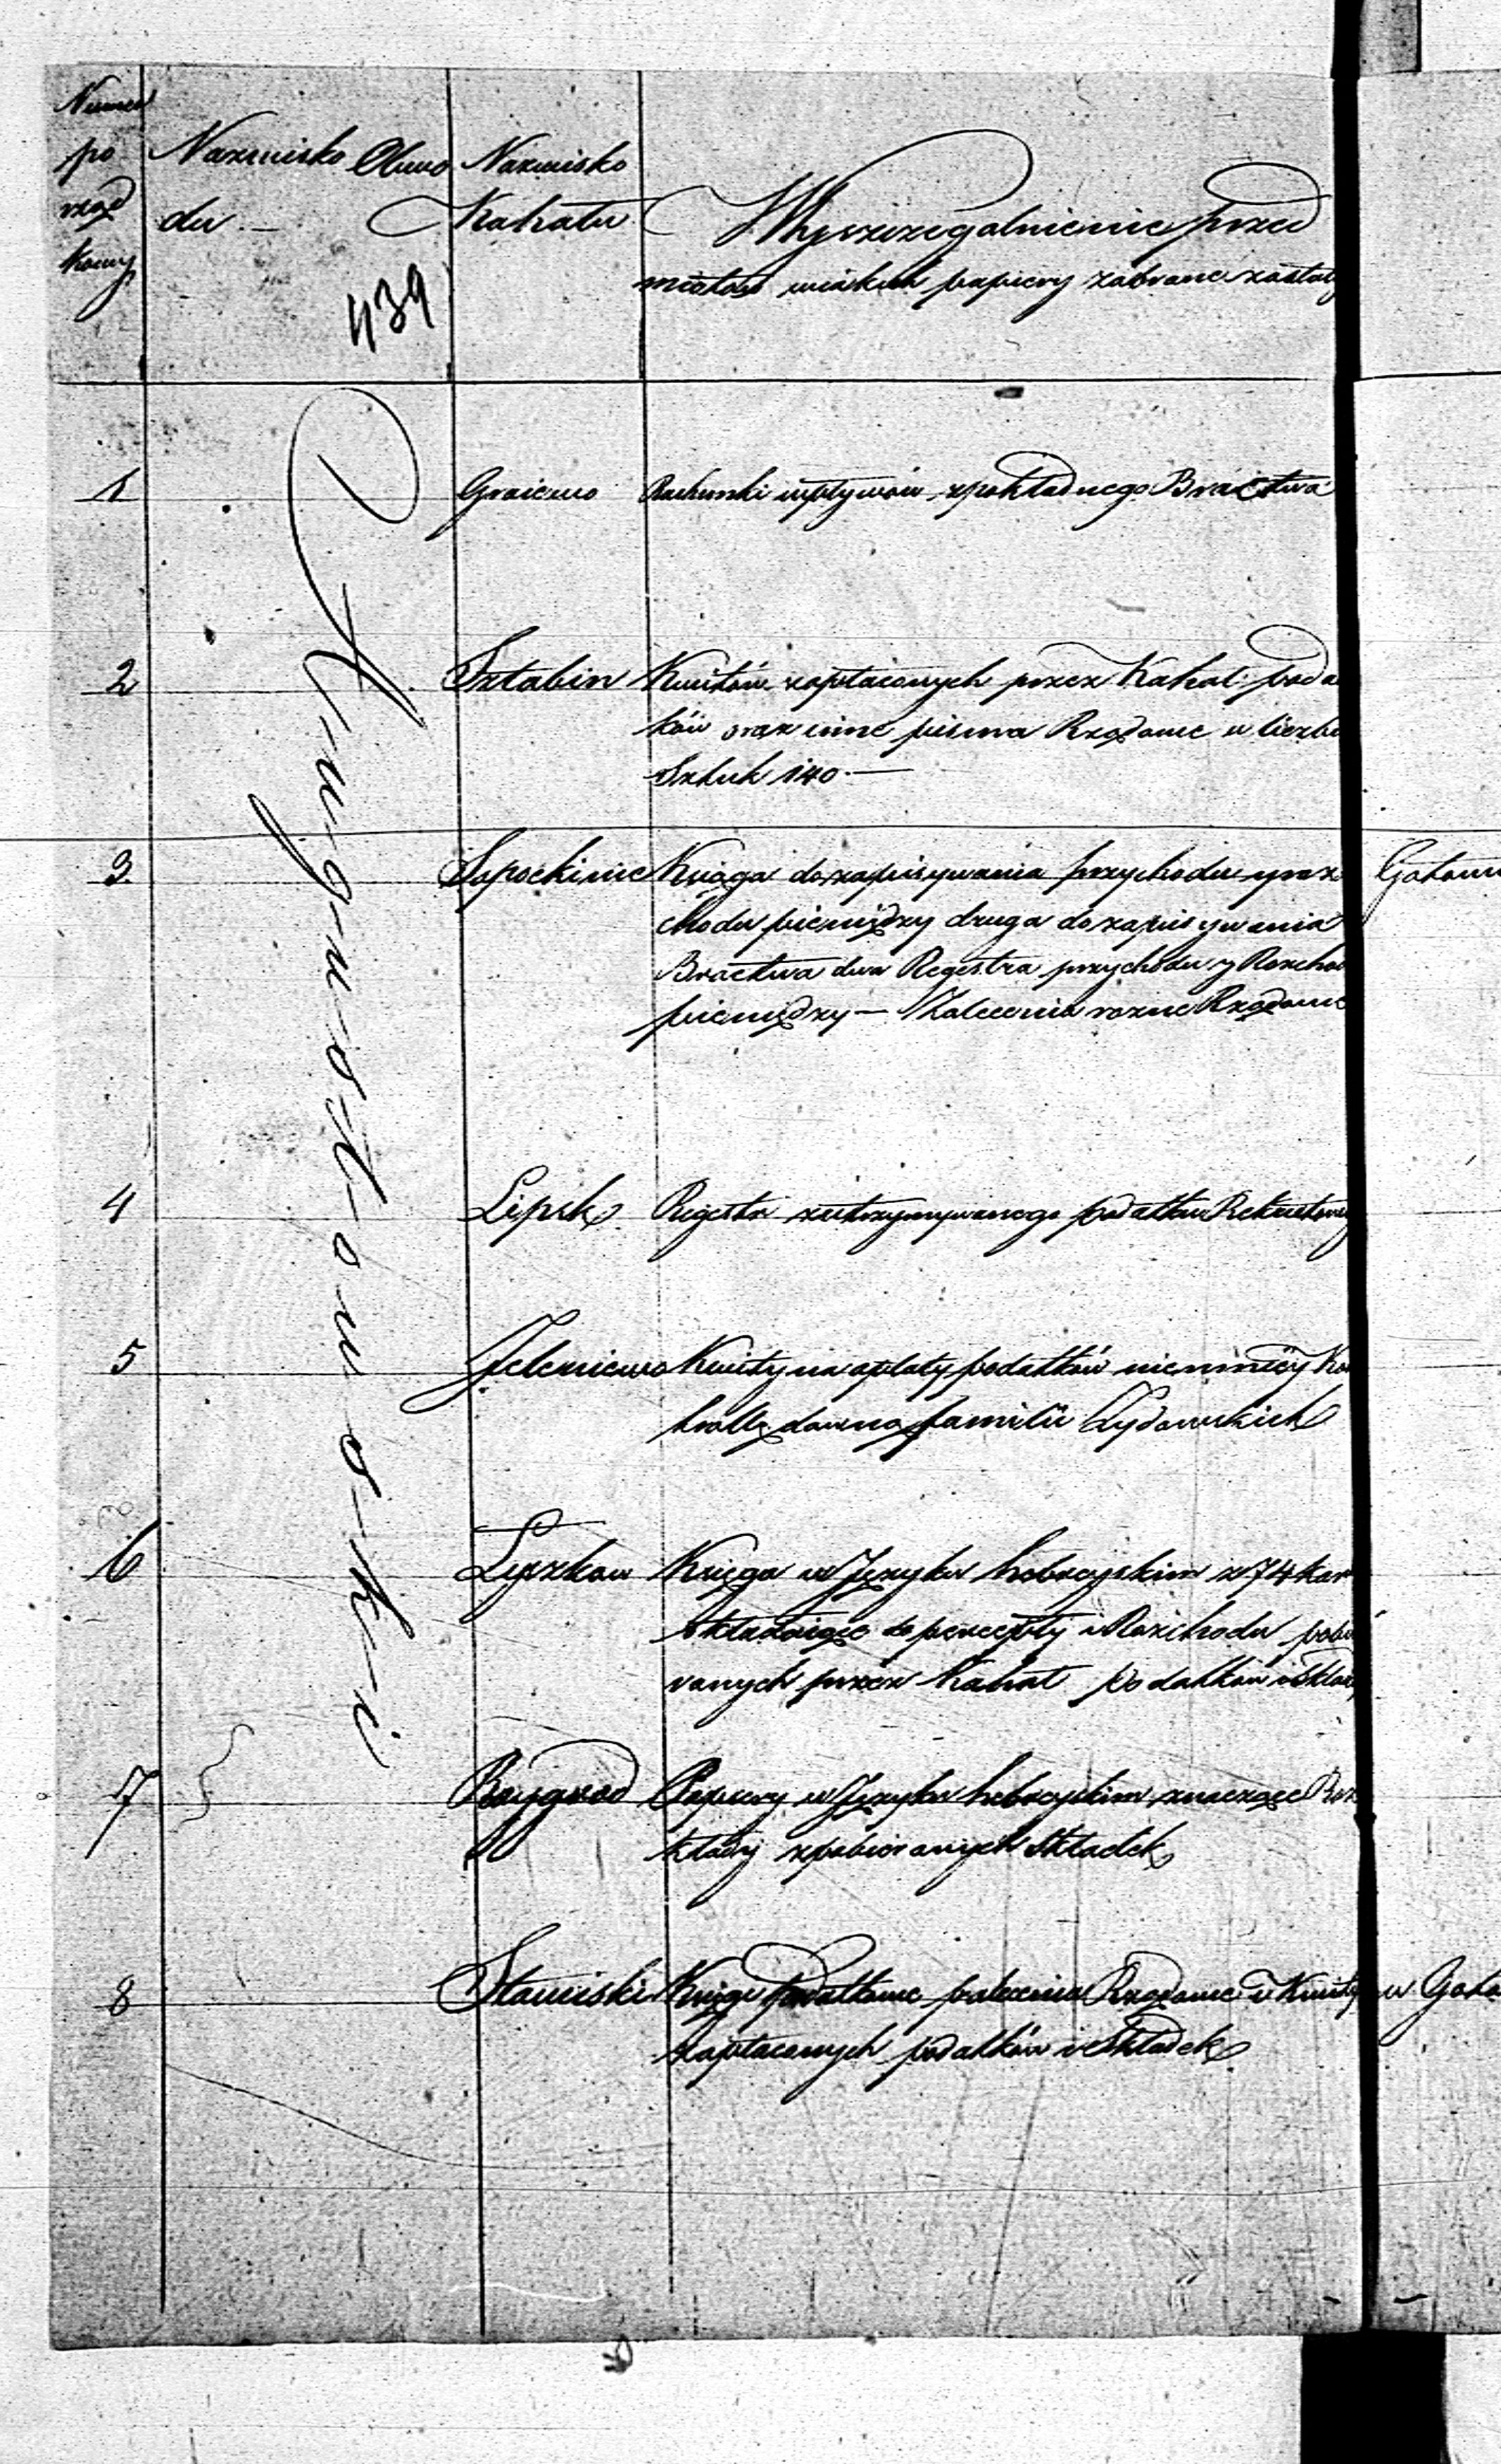 Numer
po
rząd
kowy
Nazwisko Obwo
du. —
439
Nazwisko
Kahału
Wyszczegolnienie przed
miotow w iakich papiery zabrane zostały
Augustowski
1
Graiewo
Rachunki wpływów z pokładnego Bractwa
2
Sztabin
Kwitów zapłaconych przez Kahał poda
ków oraz inne pisma Rządowe w liczbie
Sztuk 140. —
3
Sopockinie
Księga do zapisywania przychodu y roz
chodu pieniędzy druga do zapisywania
Bractwa dwa Regestra przychodu y Rozchod
pieniędzy — Zalecenia rozne Rządowe
4
Lipsk
Regestr podatku
5
Jeleniewo
Kwity na opłaty podatków niemniey Ko
familii Żydowskich
6
Łyszkow
Księga w Języku hebrayskim z 74 kar
składaiąca do percepty i Rozchodu pobie
ranych przez Kahał podatkow i Skład
7
Raygrod
Papiery w Języku hebrayskim znaczące Roz
kłady z pobieranych Składek
8
Stawiski
Księgi Podatkowe polecenia Rządowe i Kwity
zapłaconych podatków i Składek